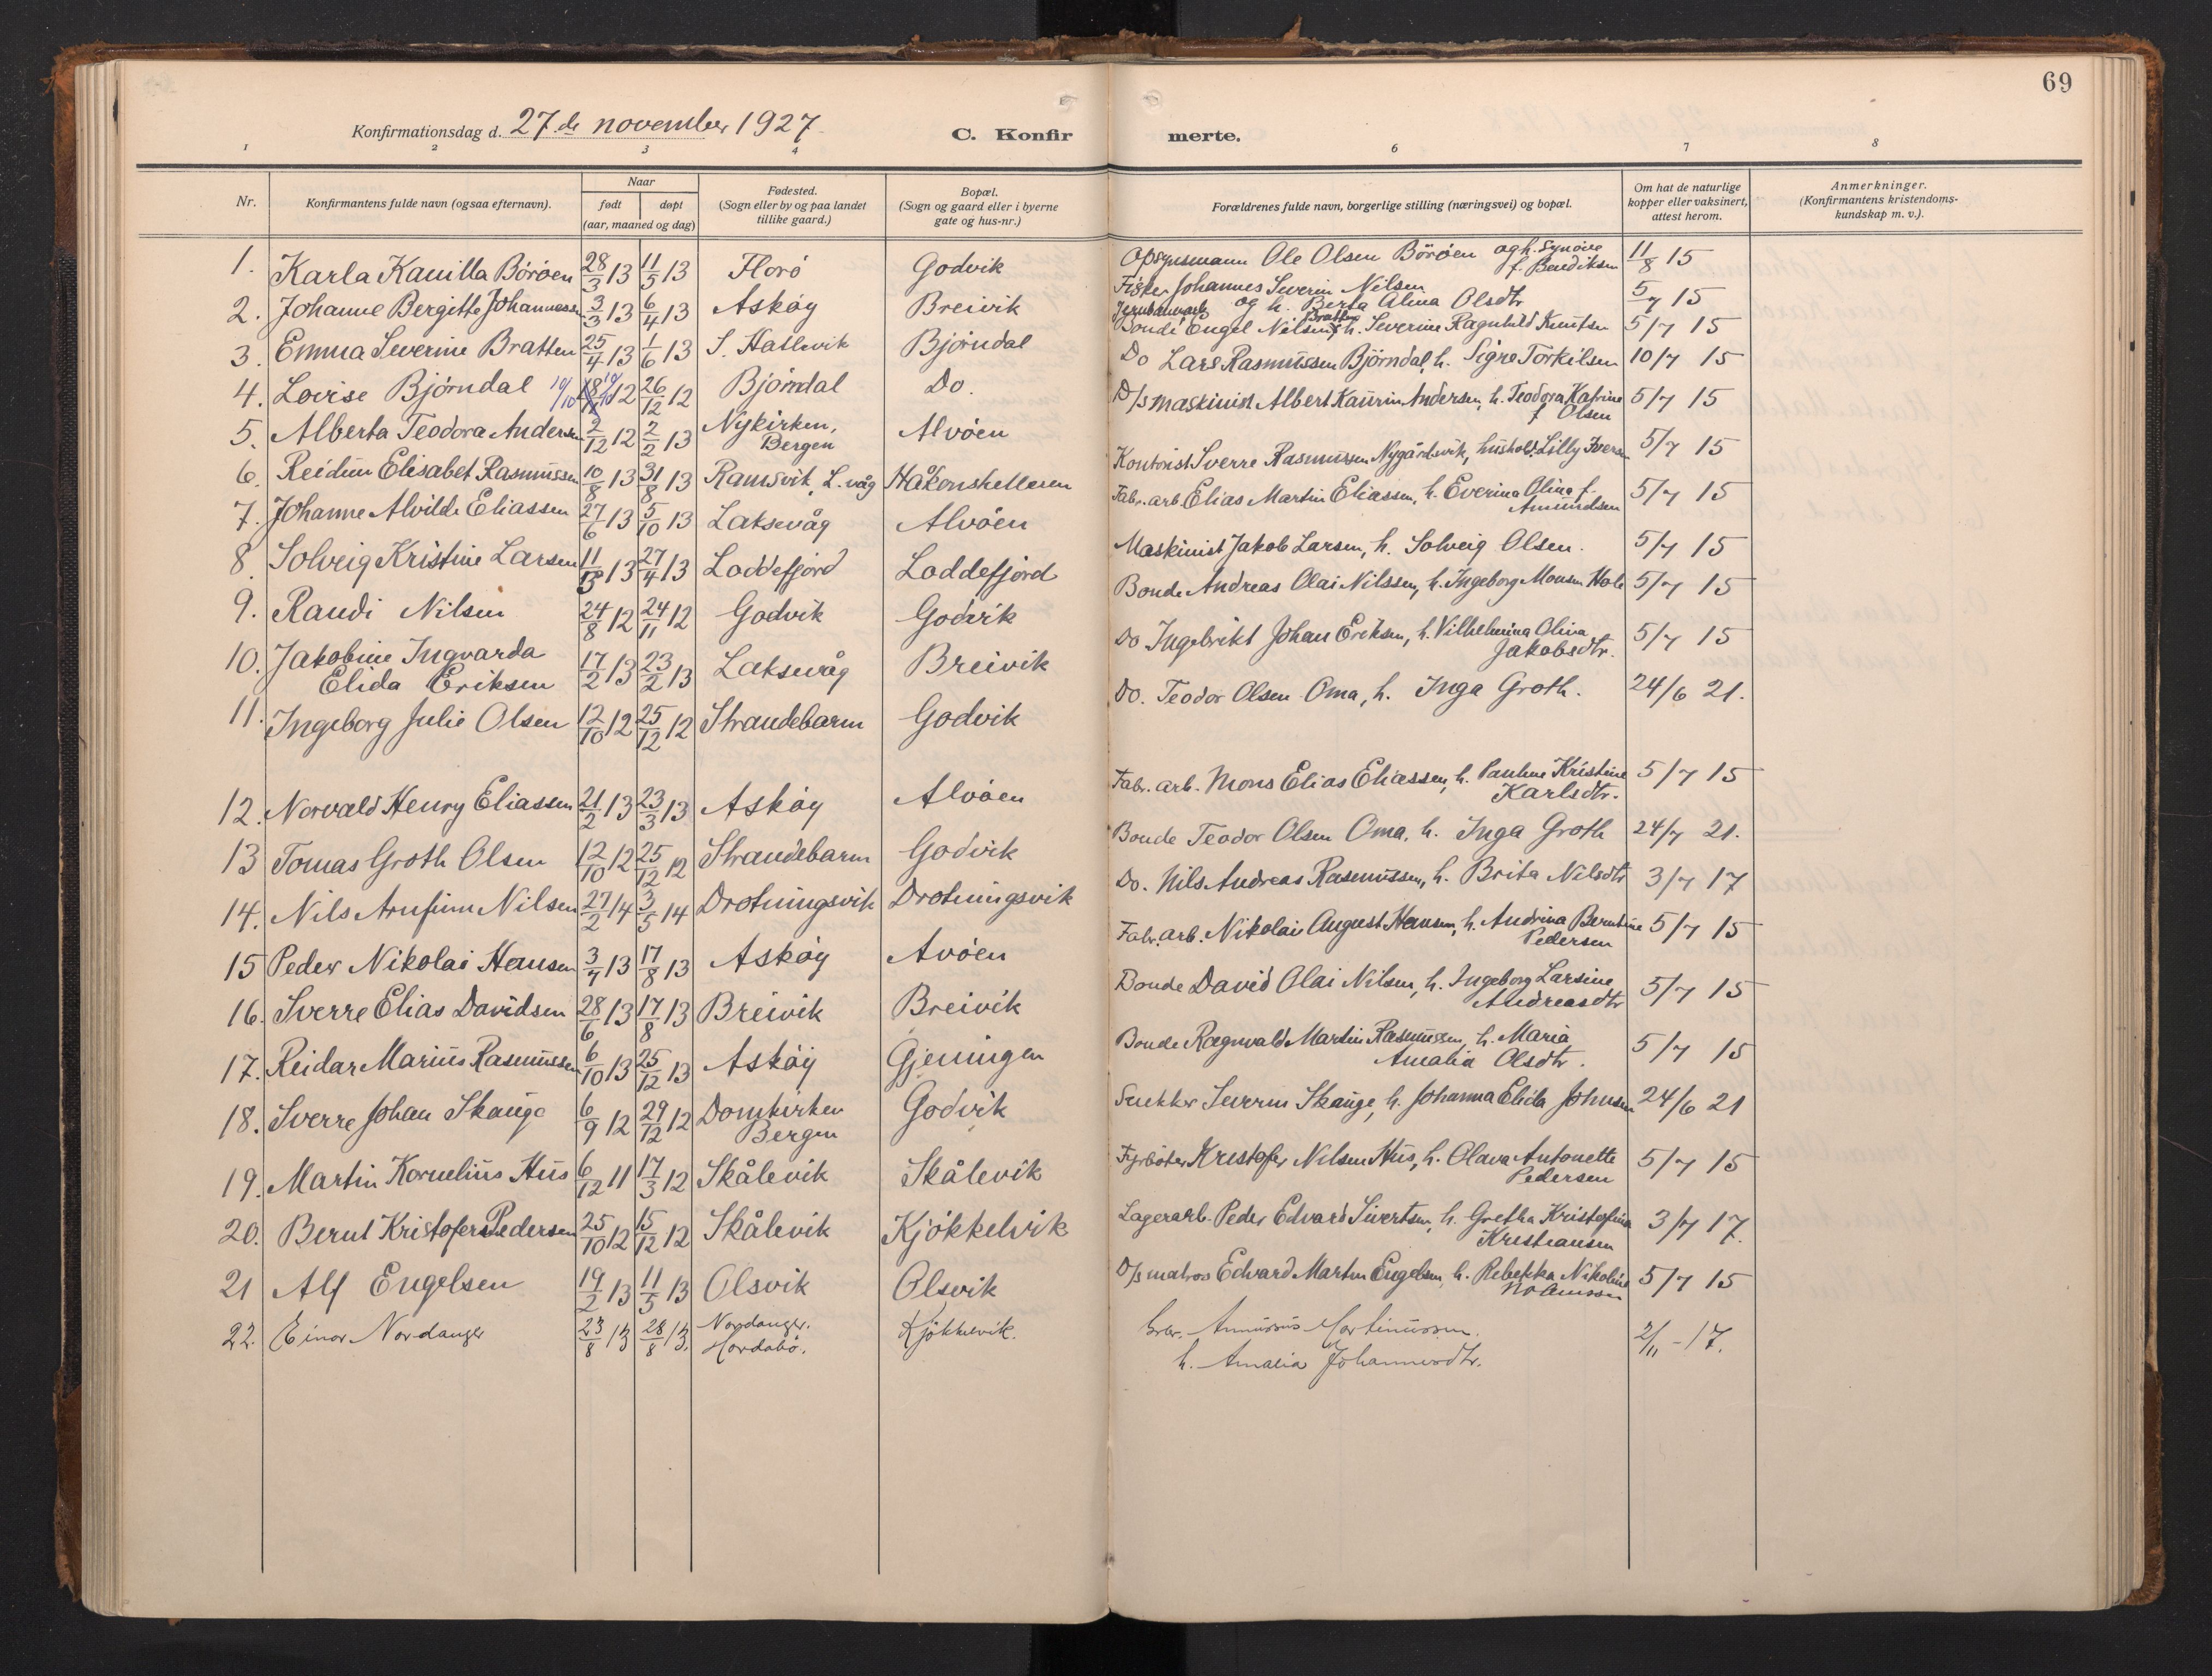 69
Konfirmationsdag d. 27de november 1927. C. Konfirmerte.
1 2 3 4 6 7 8
Nr. Konfirmantens fulde navn (ogsaa efternavn). Naar født døpt (aar, maaned og dag) Fødested. (Sogn eller by og paa landet tillike gaard.) Bopæl. (Sogn og gaard eller i byerne gate og hus-nr.) Forældrenes fulde navn, borgerlige stilling (næringsvei) og bopæl. Om hat de naturlige kopper eller vaksinert, attest herom. Anmerkninger. (Konfirmantens kristendomskundskap m. v.).
1. Karla Kamilla Böröen 28/3 13 11/5 13 Florö Godvik Opsynsmann Ole Olsen Böröen og h. Synöve f. Bendiksen 11/8 15
2. Johanne Bergitte Johannessen 3/3 13 6/4 13 Asköy Breivik Fisker Johannes Severin Nilsen og h. Berta Alina Olsdtr 5/7 15
3. Emma Severine Bratten 25/4 13 1/6 13 S. Hallevik Björndal Engel Nilsen Bratten, h. Severine Ragnhild Knutsen 5/7 15
4. Lovise Björndal 10/10 12 26/12 12 Björndal Do. Do Lars Rasmussen Björndal, h. Sigre Torkilsen 10/7 15
5. Alberta Teodora Andersen 2/12 12 2/2 13 Nykirken, Bergen Alvöen D/s maskinist Albert Kaurin Andersen, h. Teodora Katrine f. Olsen 5/7 15
6. Reidun Elisabet Rasmussen 10/8 13 31/8 13 Ramsvik, L.våg Håkonshelleren Kontorist Sverre Rasmussen Nygårdsvik, hushold. Lilly Iversen 5/7 15
7. Johanne Alvilde Eliassen 27/6 13 5/10 13 Laksevåg Alvöen Fabr. arb. Elias Martin Eliassen, h. Everina Olina f. Amundsen 5/7 15
8. Solveig Kristine Larsen 11/3 13 27/4 13 Loddefjord Loddefjord Maskinist Jakob Larsen, h. Solveig Olsen. 5/7 15
9. Randi Nilsen 24/8 12 24/11 12 Godvik Godvik Bonde Andreas Olai Nilssen, h. Ingeborg Monsen Hole 5/7 15
10. Jakobine Ingvarda Elida Eriksen 17/2 13 23/2 13 Laksevåg Breivik Do Ingebrikt Johan Eriksen, h. Vilhelmina Oliva Jakobsdtr. 5/7 15
11. Ingeborg Julie Olsen 12/10 12 25/12 12 Strandebarm Godvik Do. Teodor Olsen Oma, h. Inga Groth. 24/6 21.
12. Norvald Henry Eliassen 21/2 13 23/3 13 Asköy Alvöen Fabr. arb. Mons Elias Eliassen, h. Pauline Kristine Karlsdtr. 5/7 15
13 Tomas Groth Olsen 12/10 12 25/12 12 Strandebarm Godvik Bonde Teodor Olsen Oma, h. Inga Groth 24/7 21.
14. Nils Arnfinn Nilsen 27/2 14 3/5 14 Drotningsvik Drotningsvik Do. Nils Andreas Rasmussen, h. Brita Nilsdtr 3/7 17
15 Peder Nikolai Hansen 3/7 13 17/8 13 Asköy Avöen Fabr. arb. Nikolai August Hansen, h. Andrina Berntine Pedersen 5/7 15
16. Sverre Elias Davidsen 28/6 13 17/8 13 Breivik Breivik Bonde David Olai Nilsen, h. Ingeborg Larsine Andreasdtr 5/7 15
17. Reidar Marius Rasmussen 6/10 13 25/12 13 Asköy Gjeningen Bonde Ragnvald Martin Rasmussen, h. Maria Amalia Olsdtr. 5/7 15
18. Sverre Johan Skauge 6/9 12 29/12 12 Domkirken Bergen Godvik Snekker Severin Skauge, h. Johanna Elida Johnsen 24/6 21
19. Martin Kornelius Hus 6/12 11 17/3 12 Skålevik Skålevik Fyrböter Kristofer Nilsen Hus, h. Olava Antonette Pedersen 5/7 15
20. Bernt Kristofer Pedersen 25/10 12 15/12 12 Skålevik Kjökkelvik Lagerarb. Peder Edvard Sivertsen, h. Gretha Kristofina Kristiansen 3/7 17.
21 Alf Engelsen 19/2 13 11/5 13 Olsvik Olsvik D/s matros Edvard Martin Engelsen, h. Rebekka Nikoline 5/7 15
22. Einar Nordanger 23/8 13 28/8 13. Nordanger. Hordabö. Kjökkelvik. h. Amalia Johannesdtr. 2/11 - 17.